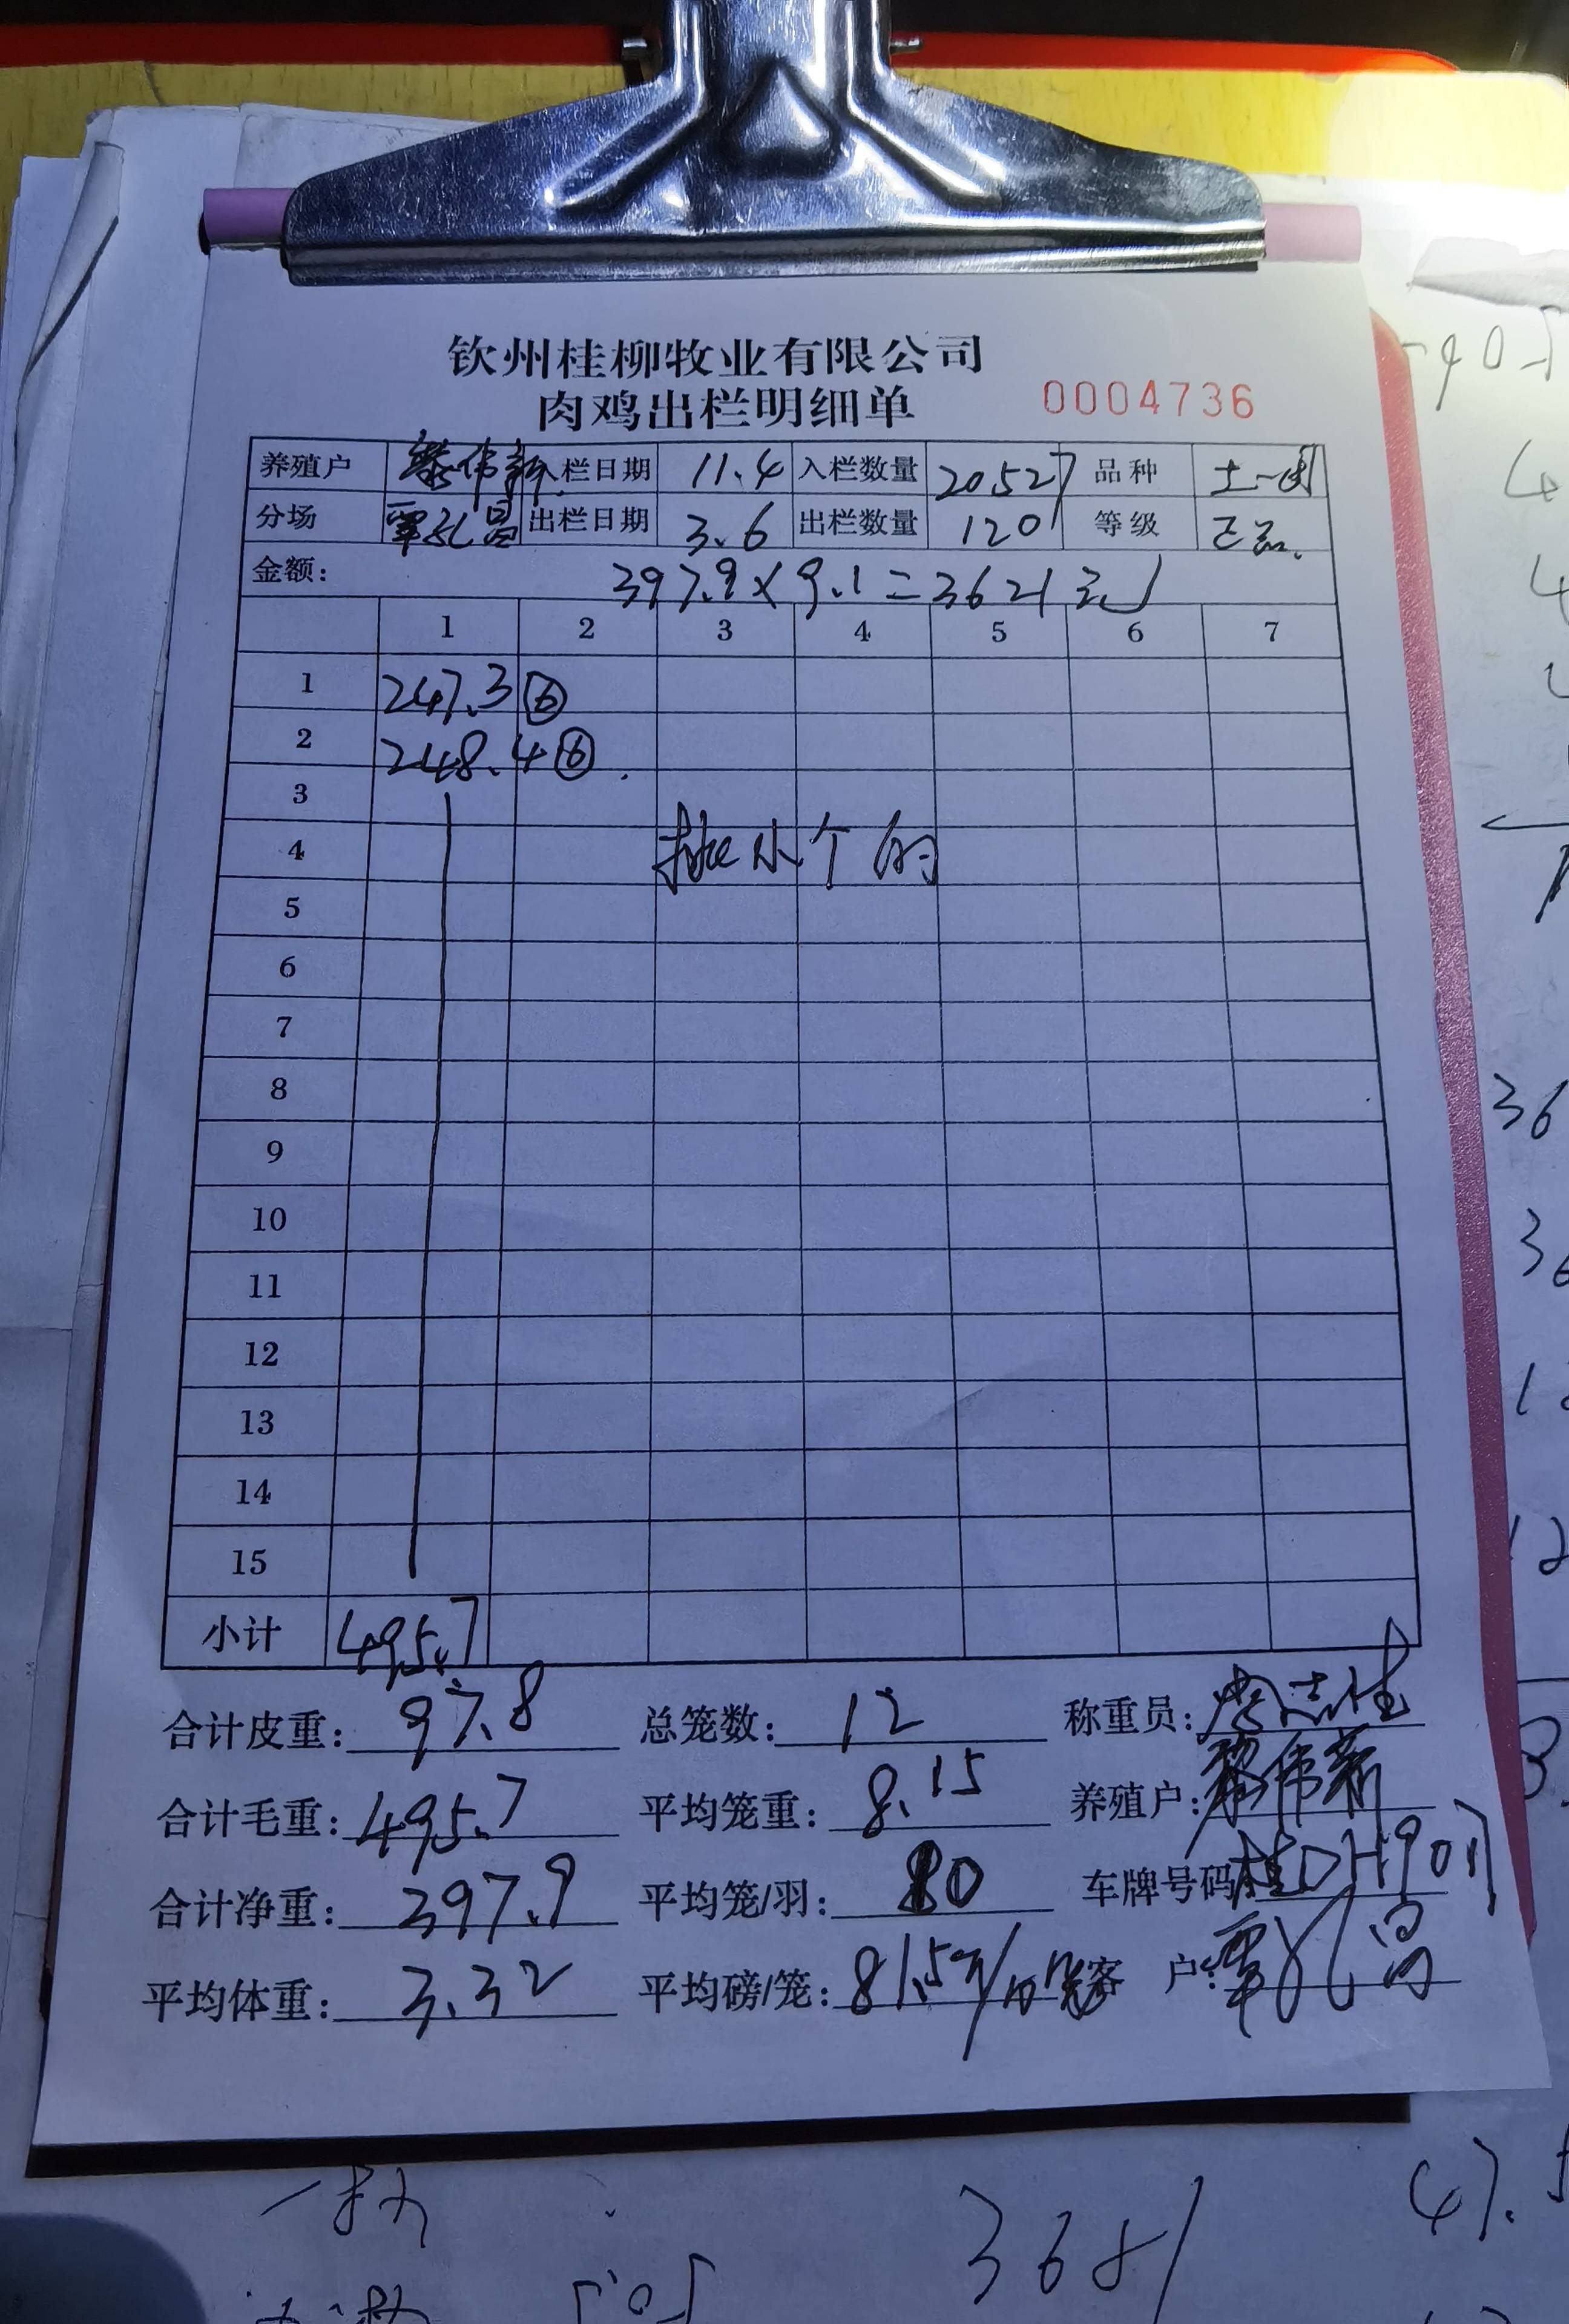 钦州桂柳牧业有限公司
肉鸡出栏明细单 0004736
养殖户 黎伟新 入栏日期 11.4 入栏数量 20527 品种 土一
分场 覃孔昌 出栏日期 3.6 出栏数量 120 等级 正品.
金额: 397.9×9.1=3621元
1 2 3 4 5 6 7
1 247.3 ⑥
2 248.4 ⑥
3
4 挑小个的
5
6
7
8
9
10
11
12
13
14
15
小计 495.7
合计皮重: 97.8 总笼数: 12 称重员:
合计毛重: 495.7 平均笼重: 8.15 养殖户: 黎伟新
合计净重: 397.9 平均笼/羽: 10 车牌号码: 桂DH901
平均体重: 3.32 平均磅/笼: 81.5 客 户: 覃孔昌
3621
505
47.5